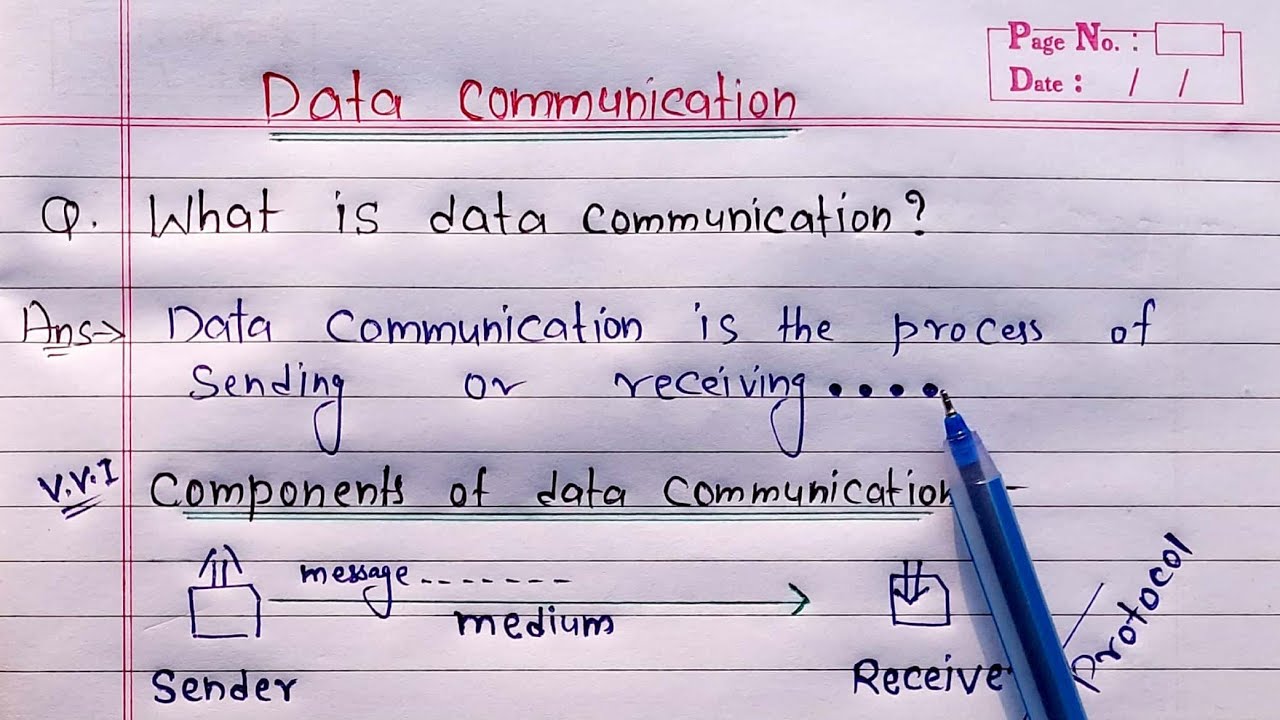 Page No. :
Date : / /
Data Communication
Q. What is data communication?
Ans→ Data Communication is the process of
Sending or receiving ....
V.V.I Components of data Communication -
message -------
medium
Sender
Receive
Protocol